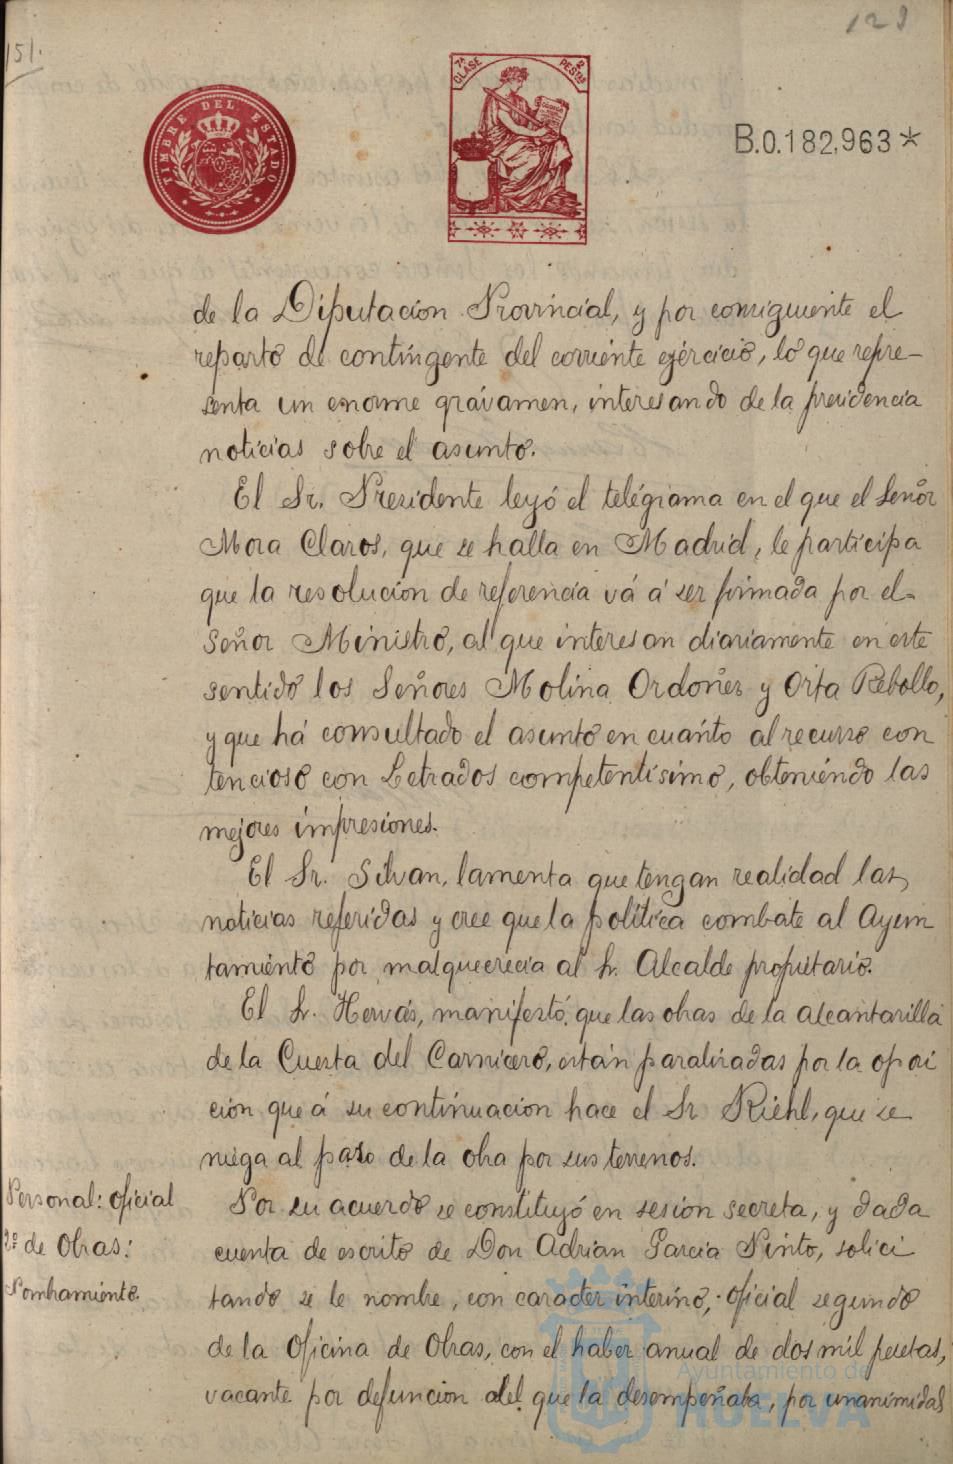 151.
123
TIMBRE DEL ESTADO
7ª CLASE
2 PESTAS
B.0.182,963*
de la Diputacion Provincial, y por consiguiente el
reparto de contingente del corriente ejercicio, lo que repre-
senta un enorme grávamen, interesando de la presidencia
noticias sobre el asunto.
El Sr. Presidente leyó el telégrama en el que el Señor
Mora Claros, que se halla en Madrid, le participa
que la resolucion de referencia vá á ser firmada por el
Señor Ministro, al que interesan diariamente en este
sentido los Señores Molina Ordoñez y Orta Rebollo,
y que há consultado el asunto en cuanto al recurso con
tencioso con Letrados competentisimo, obteniendo las
mejores impresiones.
El Sr. Silvan, lamenta que tengan realidad las
noticias referidas y cree que la politica combate al Ayun
tamiento por malquerecia al Sr. Alcalde propietario.
El Sr. Hervás, manifestó, que las obras de la alcantarilla
de la Cuesta del Carnicero, están paralizadas por la oposi
cion que á su continuacion hace el Sr Riehl, que se
niega al paso de la obra por sus terrenos.
Personal: oficial
2º de Obras:
Nombramiento.
Por su acuerdo se constituyó en sesion secreta, y dada
cuenta de escrito de Don Adrian Garcia Pinto, solici
tando se le nombre, con caracter interino, oficial segundo
de la Oficina de Obras, con el haber anual de dos mil pesetas,
vacante por defuncion del que la desempeñaba, por unanimidad
Ayuntamiento de
HUELVA